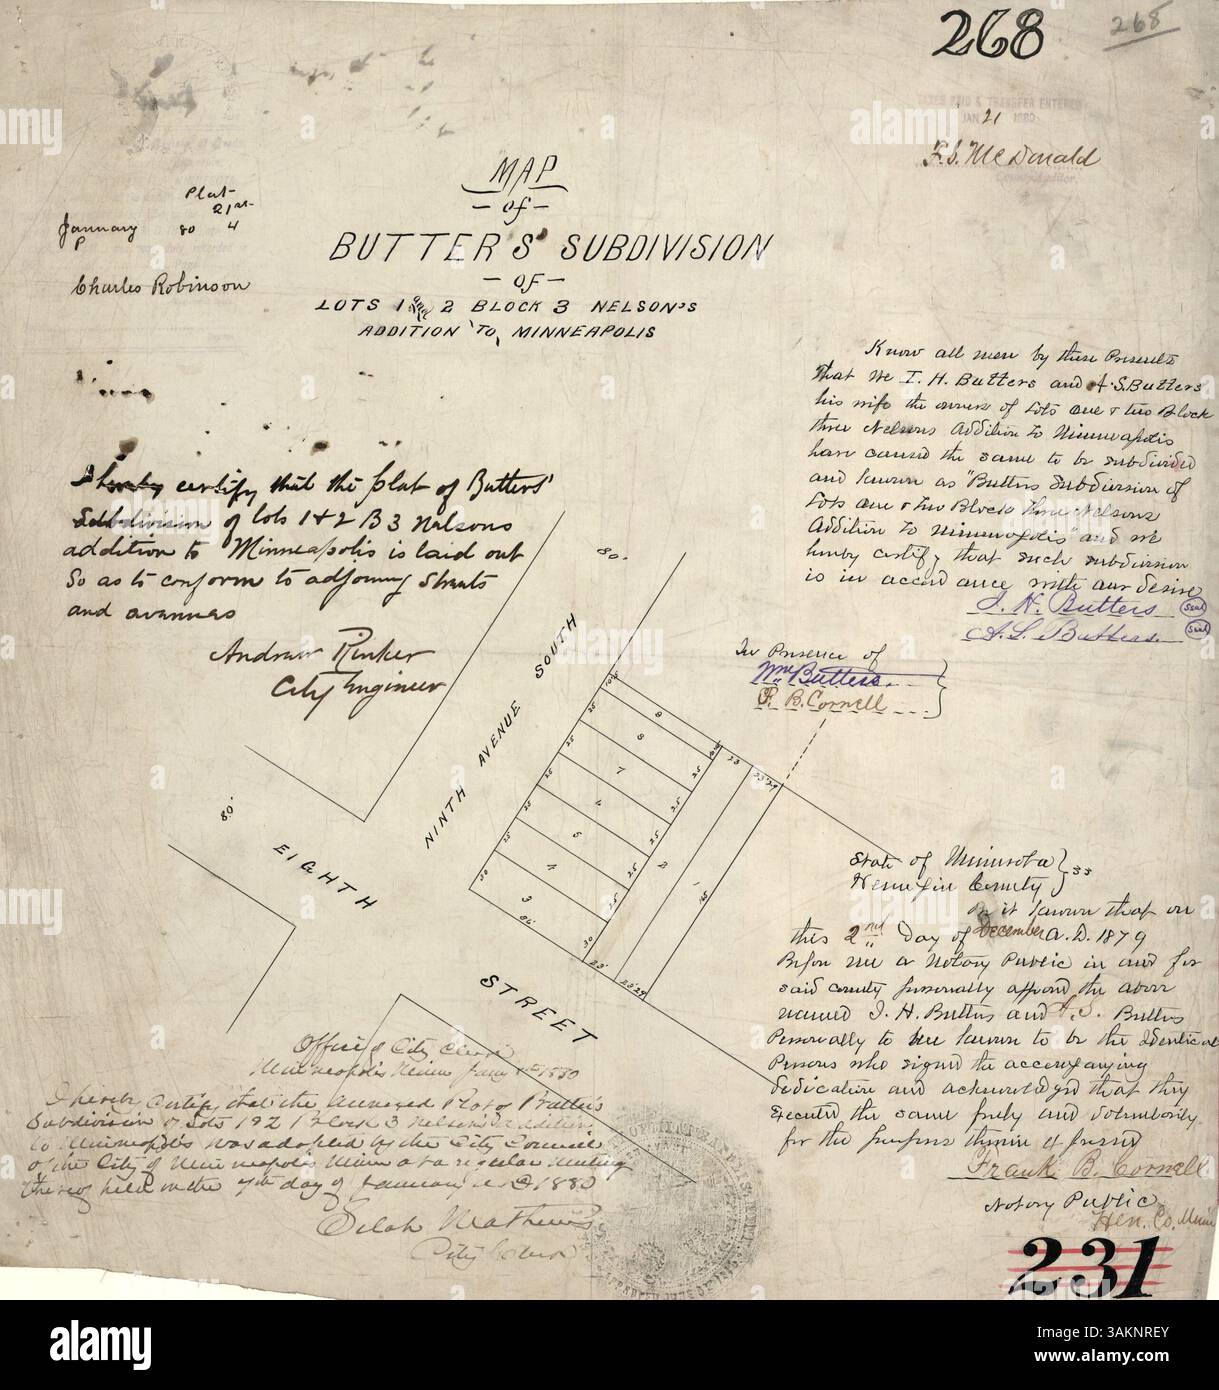 268
268
TAXES PAID & TRANSFER ENTERED
JAN 21 1880
F. S. McDonald
County Auditor.
MAP
- of -
BUTTER'S SUBDIVISION
- OF -
LOTS 1 and 2 BLOCK 3 NELSON'S
ADDITION TO MINNEAPOLIS
Plat
21st
January 80 4
P
Charles Robinson
Know all men by these Presents
that We I. H. Butters and A. S. Butters
his wife the owners of Lots one & two Block
three Nelsons Addition to Minneapolis
have caused the same to be subdivided
and known as "Butters Subdivision of
Lots one & two Block three Nelsons
Addition to Minneapolis" and we
hereby certify that such subdivision
is in accordance with our desire
I. H. Butters Seal
A. S. Butters. Seal
In Presence of
Wm Butters
F. B. Cornell
I hereby certify that the plat of Butters'
Subdivision of lots 1 & 2 B 3 Nelsons
addition to Minneapolis is laid out
So as to conform to adjoining Streets
and avenues
Andrew Rinker
City Engineer
80.
NINTH AVENUE SOUTH
80'
EIGHTH
STREET
9
8
7
6
5
4
3
2
1
25
25
25
25
25
30
25
25
25
25
25
30
86'
23'
23
145
State of Minnesota } ss
Hennepin County
Be it known that on
this 2nd Day of December A. D. 1879
Before me a Notary Public in and for
said County personally appeared the above
named I. H. Butters and A. S. Butters
Personally to me known to be the Identical
Persons who signed the accompanying
dedication and acknowledged that they
Executed the same freely and voluntarily
for the purposes therein expressed
Frank B. Cornell
Notary Public
Hen. Co. Minn
231
Office of City Clerk
Minneapolis Minn Jany 1880
I hereby Certify that the annexed Plat of Butter's
Subdivision of Lots 1 & 2 Block 3 Nelson's addition
to Minneapolis was adopted by the City Council
of the City of Minneapolis Minn at a regular Meeting
thereof held on the 7th day of January A D 1880
Selah Matthews
City Clerk
alamy
Image ID: 3AKNREY
www.alamy.com